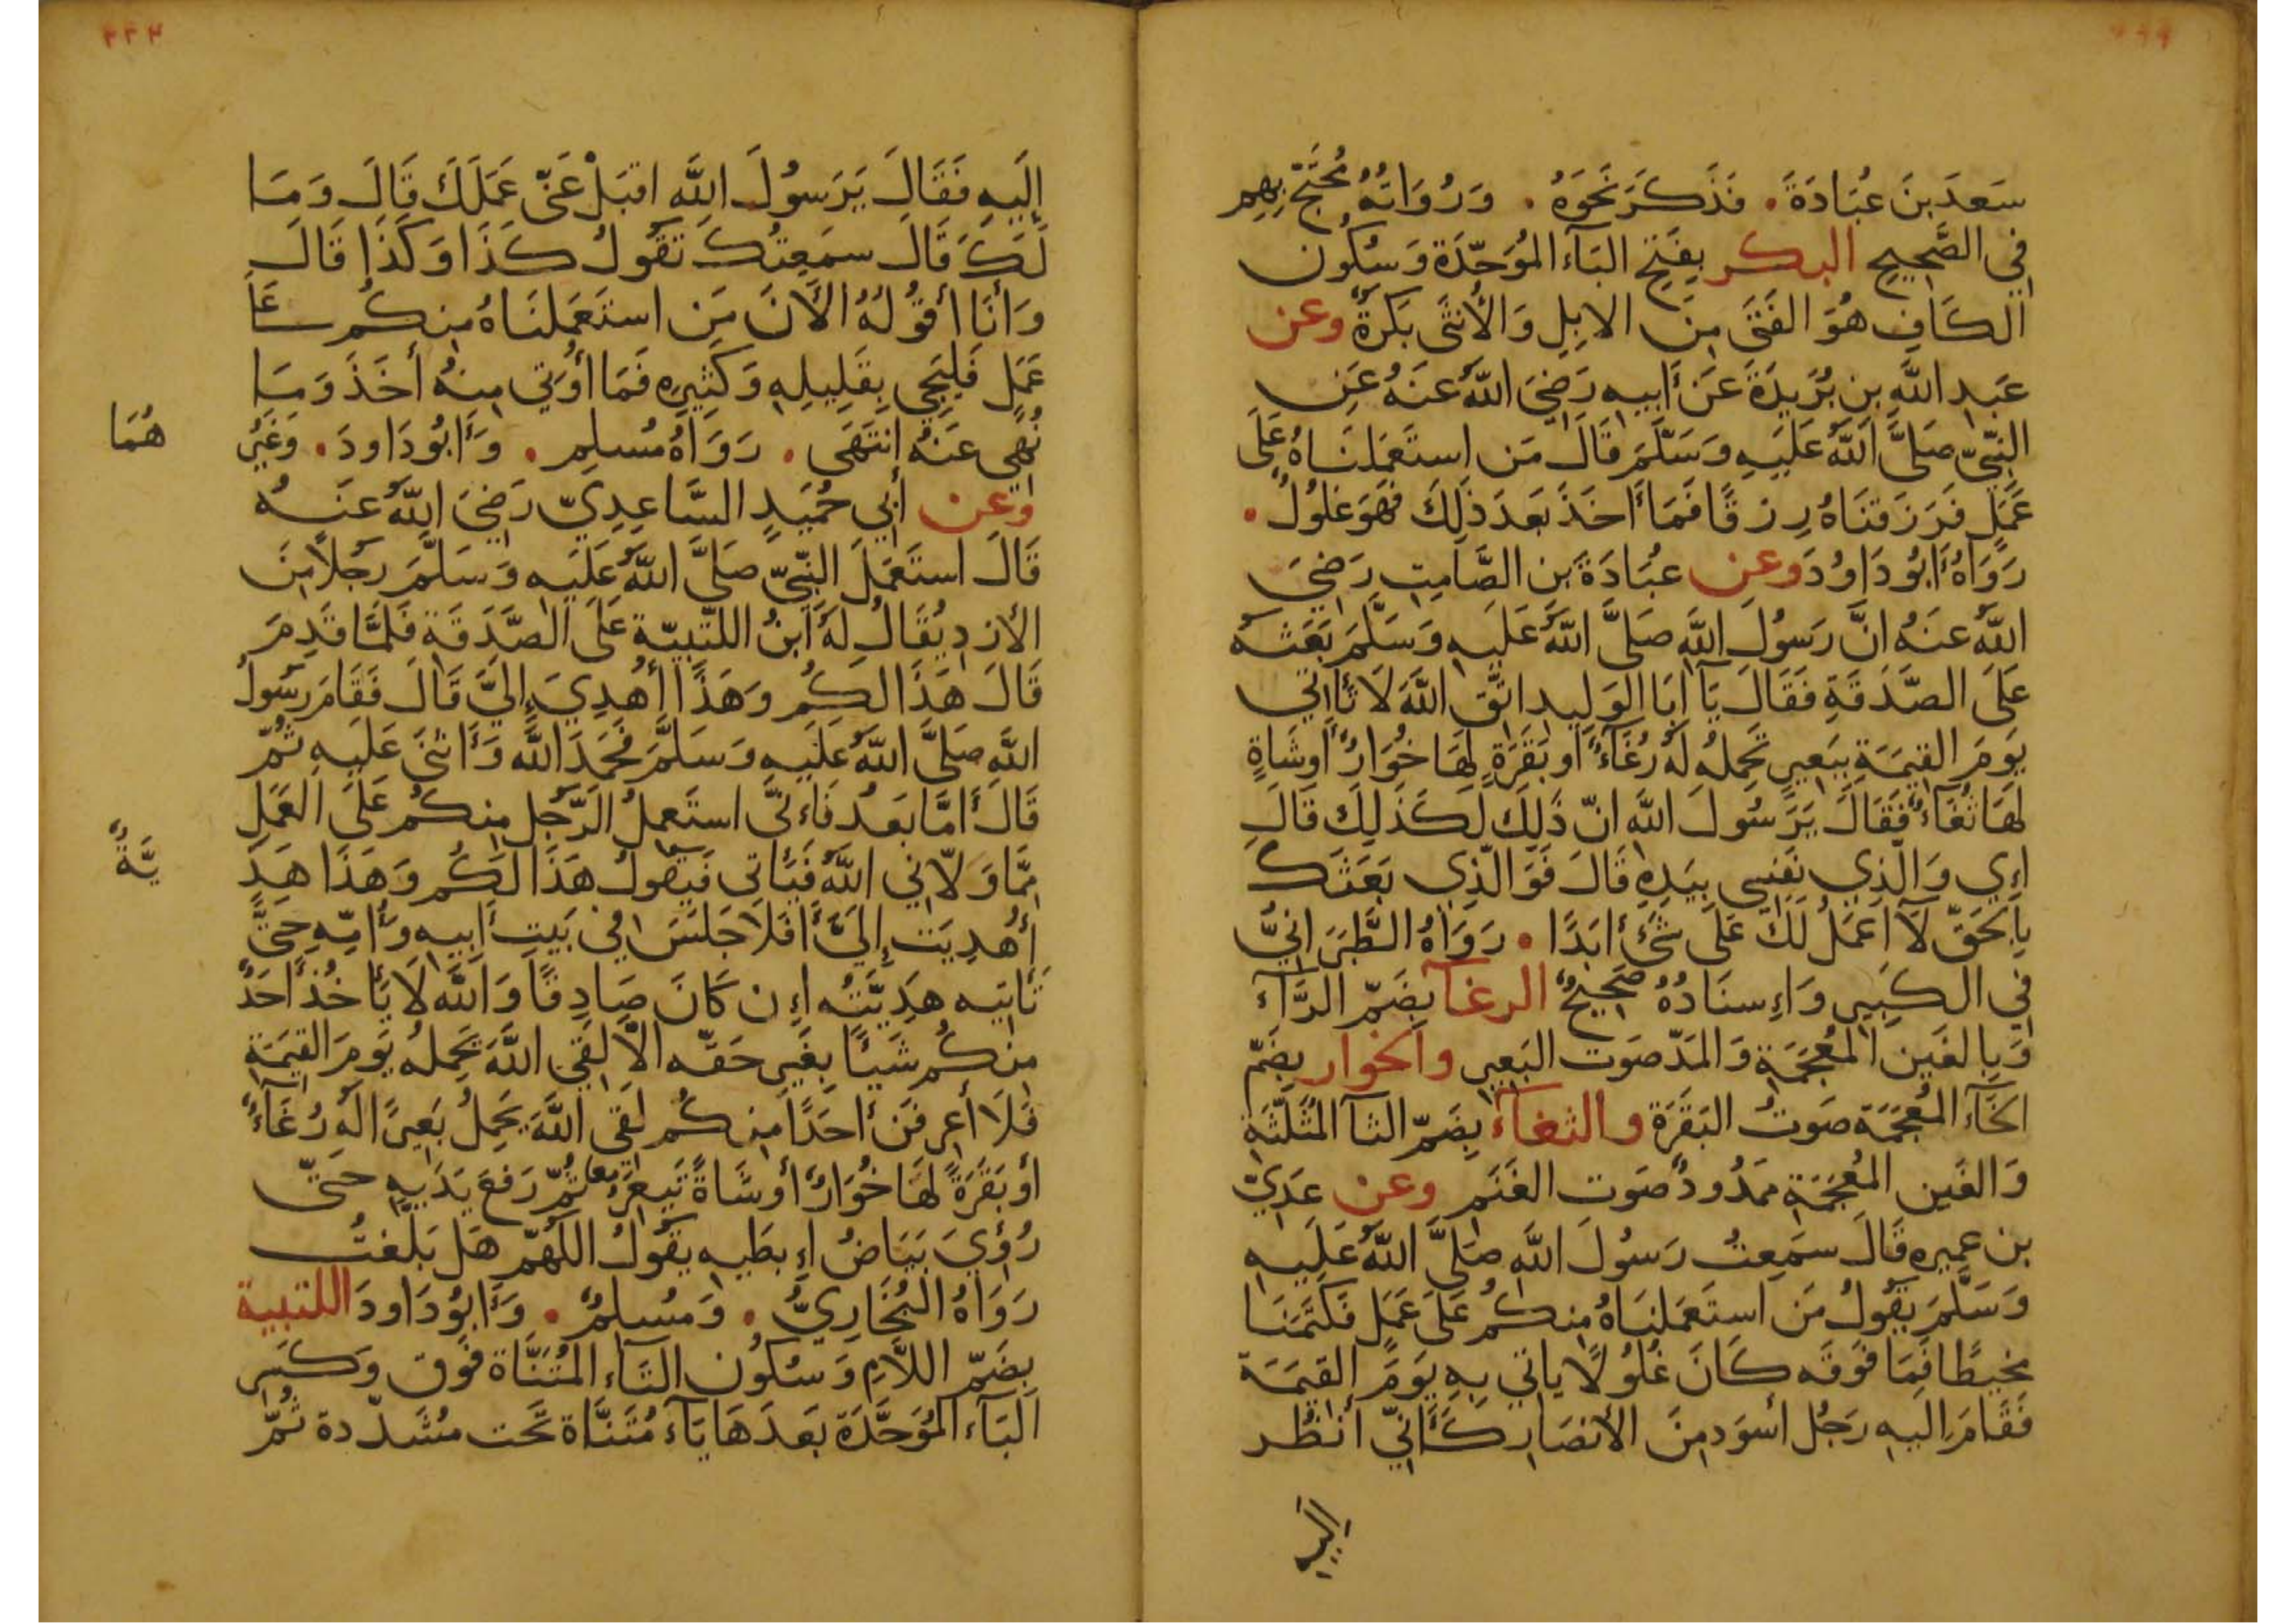 ٢٢٢
سَعدَ بنَ عُبَادَةَ. فَذَكَرَ نَحَوَهُ. وَرُوَاتُهُ مُحَتَجّ بِهِم
فِي الصَّحِيحِ البكر بِفَتحِ البَآءِ المُوَحّدَةِ وَسُكُون
الكَافِ هُوَ الفَتَى مِنَ الابِلِ وَالأُنثَى بَكَرةٌ وعن
عَبدِ اللَّهِ بنِ بُرَيدَةَ عَن أَبِيهِ رَضِيَ اللَّهُ عَنهُ عَنِ
النَّبِيّ صَلَّى اللَّهُ عَلَيهِ وَسَلَّمَ قَالَ مَنِ استَعمَلنَاهُ عَلَى
عَمَلٍ فَرَزَقنَاهُ رِزقًا فَمَا أَخَذَ بَعدَ ذَلِكَ فَهوَ غلُولٌ.
رَوَاهُ أَبُو دَاوُدَ وعن عبَادَةَ بن الصَّامِتِ رَضِيَ
اللَّهُ عنهُ انَّ رَسُولَ اللَّهِ صَلَّى اللَّهُ عَلَيهِ وَسَلَّمَ بَعَثَهُ
عَلَى الصَّدَقَةِ فَقَالَ يَآ ابَا الوَلِيدِ اتَّقِ اللَّهَ لَا تَأاتِي
يَومَ القِيَمَةِ بِبَعِيرٍ تَحمِلهُ لَهُ رُغَآءٌ أَو بَقَرَةٍ لَهَا خُوَارٌ أَو شَاةٍ
لَهَا ثُغَآءٌ فَقَالَ يَرَسُولَ اللَّهِ انّ ذَلِكَ لَكَذَلِكَ قَالَ
إِي وَالَّذِي نَفسِي بِيَدِهِ قَالَ فَوَالَّذِي بَعَثَكَ
بِالحَقّ لَآ اعمَلُ لَكَ عَلَى شَئ ابَدًا. رَوَاهُ الطَّبَرَانِيُّ
فِي الكَبِيرِ وَإِسنَادُهُ صَحِيحٌ الرغآ بِضَمّ الرَّآءِ
وَبِالغَينِ المُعجَمَةِ وَالمَدّ صَوتُ البَعِير والخوار بِضَمّ
الخَآءِ المُعجَمَة صَوتُ البَقَرَة والثغآء بِضَمّ الثآ المُثَلَّثَة
وَالغَينِ المُعجَمَةِ مَمدُودٌ صَوت الغَنَم وعن عَدِيّ
بن عَمِيره قَالَ سَمِعتُ رَسُولَ اللَّهِ صَلَّى اللَّهُ عَلَيهِ
وَسَلَّمَ يَقُولُ مَنِ استَعمَلنَاهُ مِنكُم عَلَى عَمَلٍ فَكَتَمَنَا
مخيطًا فَمَا فَوقَه كَانَ غُلُولًا ياتي بِهِ يَومَ القِيَمَة
فَقَامَ إِليهِ رَجُل أَسوَد مِنَ الأَنصَار كَأَنّي أَنظُر
اليه
٢٢٣
إِلَيهِ فَقَالَ يَرَسُولَ اللَّهِ اقبَلْ عَنّي عَمَلَكَ قَالَ وَمَا
لَكَ قَالَ سَمِعتُكَ تَقُولُ كَذَا وَكَذَا قَالَ
وَأَنَا أَقُولُهُ الأَنَ مَنِ استَعمَلنَاهُ مِنكُم عَلَى
عَمَلٍ فَليَجِي بِقَلِيلِهِ وَكَثِيرِهِ فَمَا أُوتِي مِنهُ أَخَذَ وَمَا
نُهِي عَنهُ إنتَهَى. رَوَاهُ مُسلِم. وَأَبُو دَاودَ. وَغَيرُ
هُمَا
وعن أَبِي حُمَيدٍ السَّاعِدِيّ رَضِيَ اللَّهُ عَنهُ
قَالَ استَعمَلَ النَّبِيّ صَلَّى اللَّهُ عَلَيهِ وَسَلَّمَ رَجُلًا مِنَ
الأَزدِ يُقَالُ لَهُ ابنُ اللتبيّة عَلَى الصَّدَقَةِ فَلَمَّا قَدِمَ
قَالَ هَذَا لَكُم وَهَذَا أُهدِيَ إِلَيَّ قَالَ فَقَامَ رَسُولُ
اللَّهِ صَلَّى اللَّهُ عَلَيهِ وَسَلَّمَ فَحَمِدَ اللَّهَ وَأَثنَى عَلَيهِ ثُمّ
قَالَ أَمَّا بَعدُ فَإِنّي استَعمِلُ الرَّجُلَ مِنكُم عَلَى العَمَلِ
مِمَّا وَلّانِي اللَّهُ فَيَأتِي فَيَقُولُ هَذَا لَكُم وَهَذَا هَدِ
يَّةٌ
أُهدِيَت إِلَيَّ أَفَلَا جَلَسَ فِي بَيتِ أَبِيهِ وَأُمِّهِ حَتَّى
تَأتِيَه هَدِيَّتُه إِن كَانَ صَادِقًا وَاللَّهِ لَا يَأخُذ أَحَدٌ
مِنكُم شَيئًا بِغَيرِ حَقّه الّا لَقِي اللَّهَ يَحمِلهُ يَومَ القِيَمَةِ
فَلَا أَعرِفَنّ أَحَدًا مِنكُم لَقِي اللَّهَ يَحمِلُ بَعِيرًا لَهُ رُغَآءٌ
أَو بَقَرَةً لَهَا خُوَارٌ أَو شَاةً تَيعَرُ ثُمّ رَفَعَ يَدَيهِ حَتّى
رُؤِيَ بَيَاضُ إِبطَيهِ يَقُولُ اللَّهُمّ هَل بَلَغتُ
رَوَاهُ البُخَارِيُّ. وَمُسلِمٌ. وَأَبُو دَاودَ اللتبية
بِضَمّ اللَّامِ وَسُكُون التَآءِ المُثَنَّاة فَوق وَكَسرِ
البَآءِ المُوَحَّدَة بَعدَهَا يَآء مُثَنَّاة تَحت مُشَدّدة ثُمّ